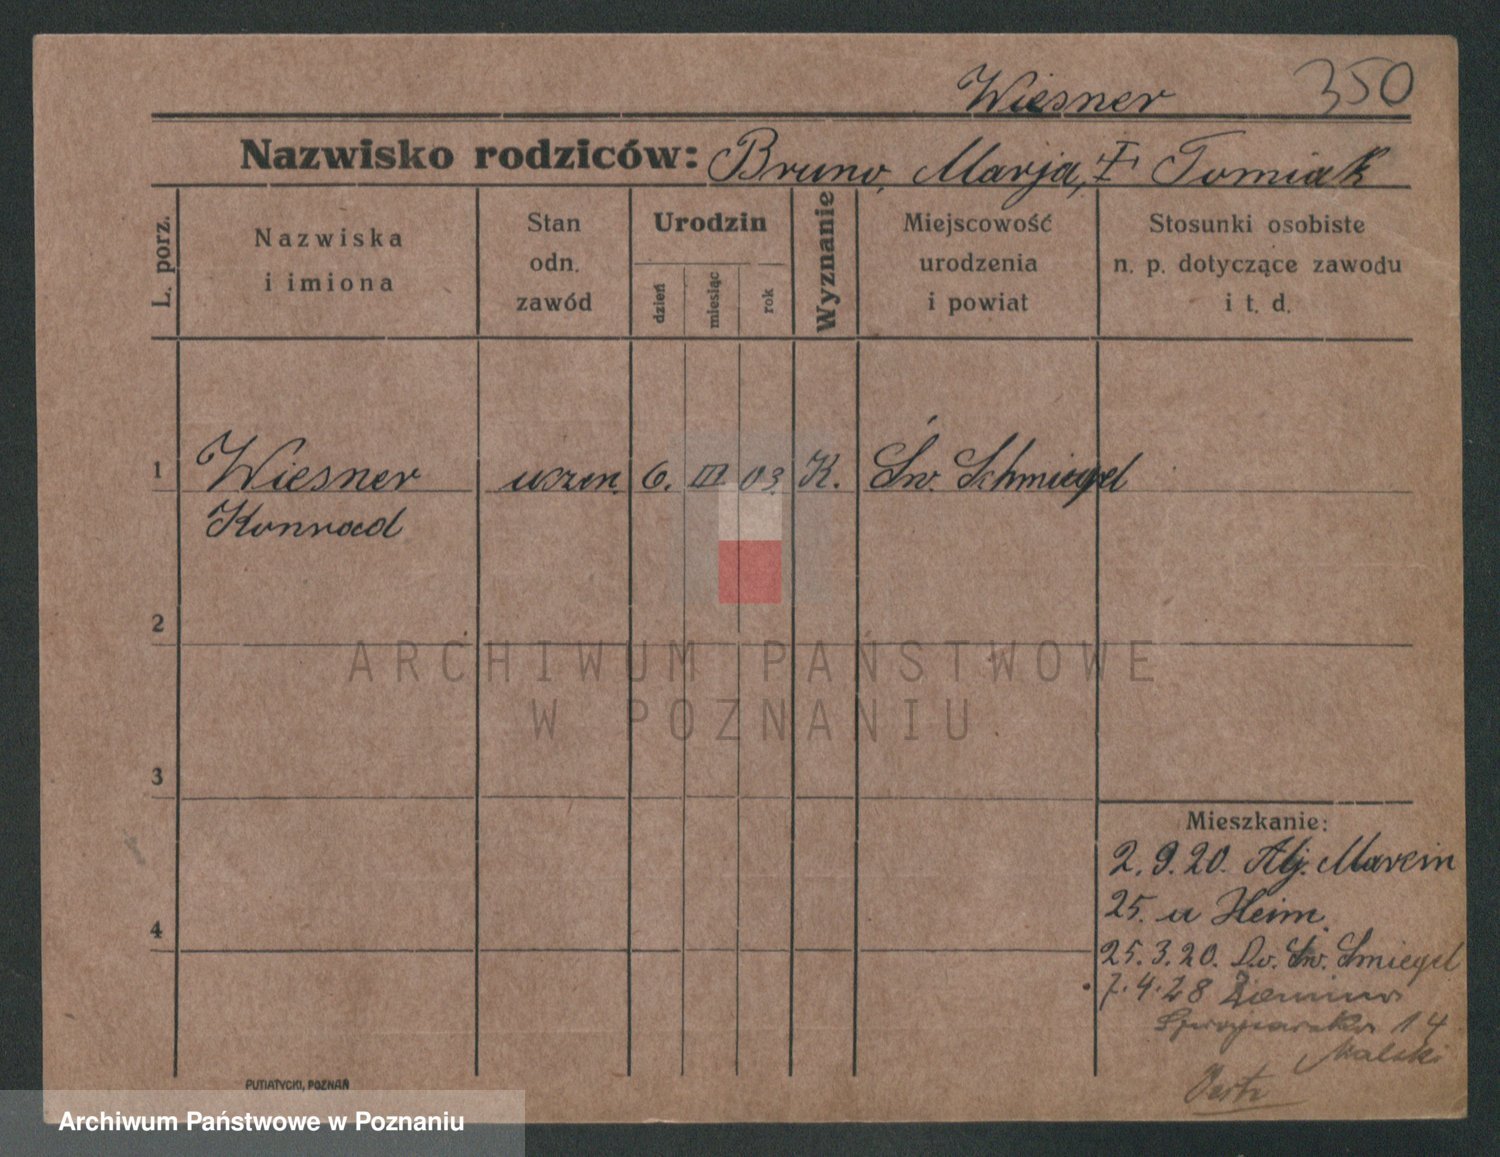 Wiesner 350
Nazwisko rodziców: Bruno, Marja, Tomiak
L. porz.
Nazwiska
i imiona
Stan
odn.
zawód
Urodzin
dzień
miesiąc
rok
Wyznanie
Miejscowość
urodzenia
i powiat
Stosunki osobiste
n. p. dotyczące zawodu
i t. d.
1 Wiesner uszen. 6. III. 03. K. Św. Schmiegel
Konrad
2
ARCHIWUM PAŃSTWOWE
W POZNANIU
3
Mieszkanie:
2. 9. 20. Alj. Marcin
25. u Heim.
4
25. 3. 20. Św. Smiegel
7. 4. 28
14
Malski
PUTIATYCKI, POZNAŃ
Archiwum Państwowe w Poznaniu